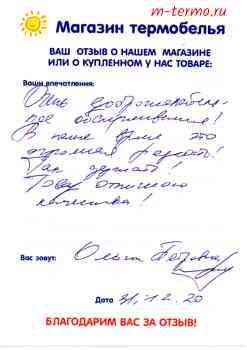 m-termo.ru
Магазин термобелья
ВАШ ОТЗЫВ О НАШЕМ МАГАЗИНЕ
ИЛИ О КУПЛЕННОМ У НАС ТОВАРЕ:
Ваши впечатления:
Очень доброжелатель-
ное обслуживание!
В наше время это
огромная редкость!
Так держать!
Товар отличного
качества!
Вас зовут: Ольга Петровна
Дата 31.12.20
БЛАГОДАРИМ ВАС ЗА ОТЗЫВ!